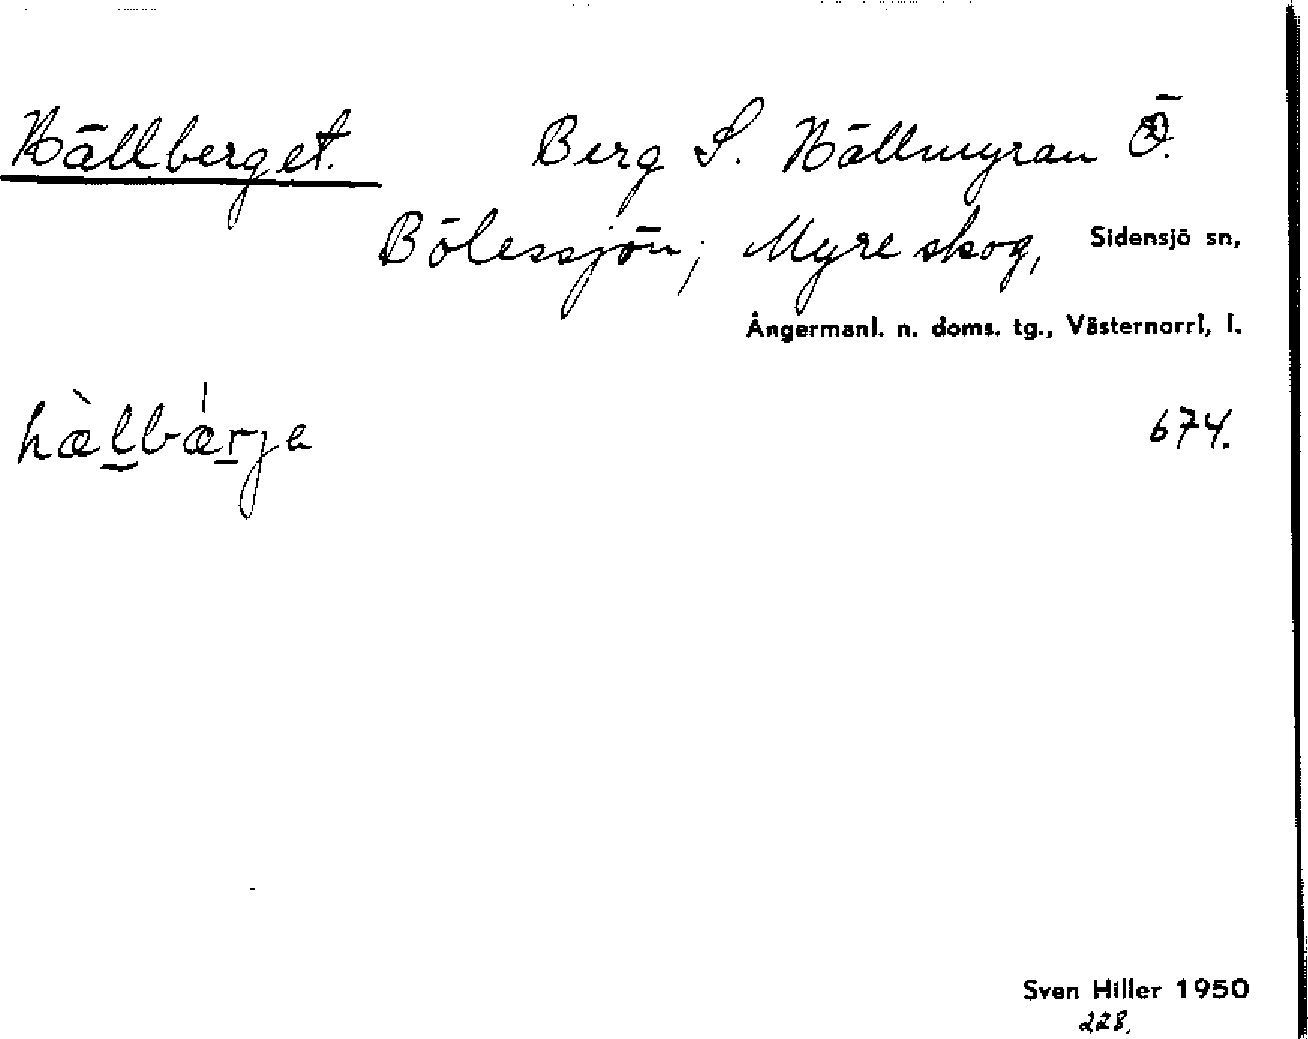 Hällberget. Berg S. Hällmyran Ö.
Bölessjön; Myre skog, Sidensjö sn,
Ångermanl. n. doms. tg., Västernorrl. l.
hæ̀l̲bær̲ja 674.
Sven Hiller 1950
228.